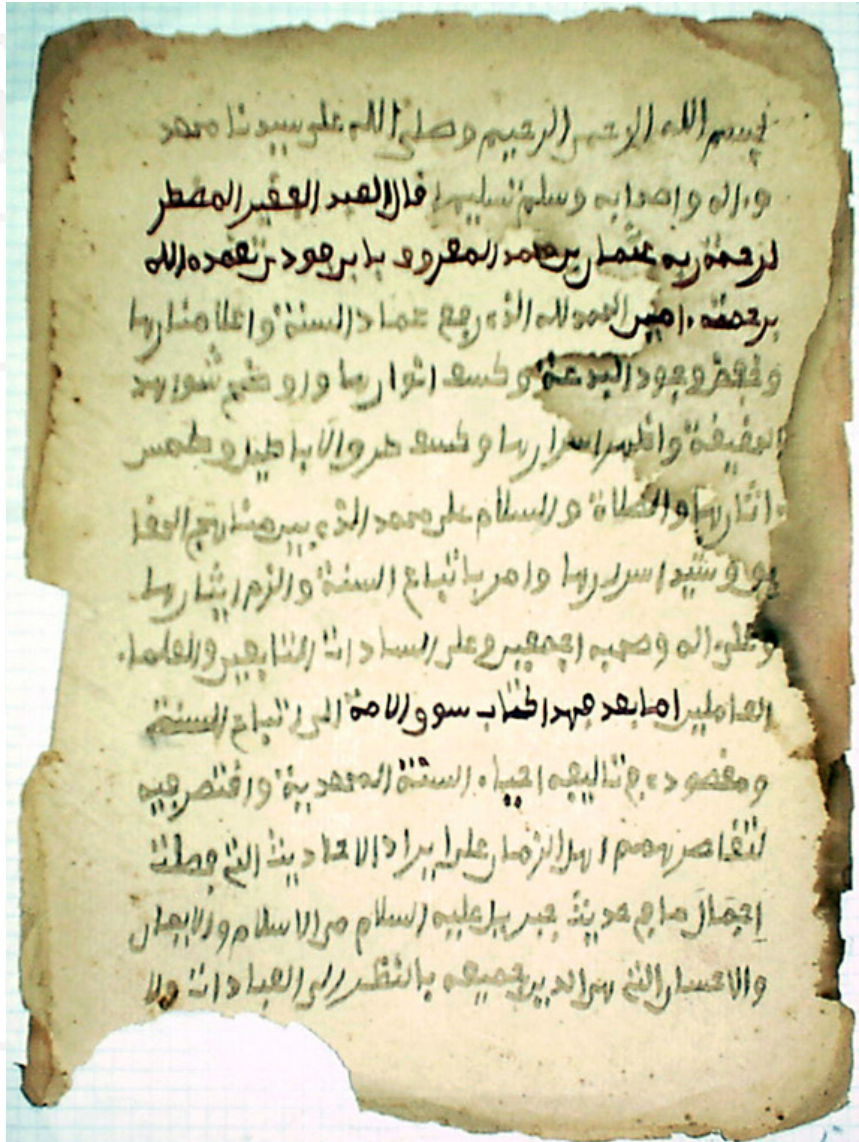 بسم الله الرحمن الرحيم وصلى الله على سيدنا محمد
وءاله واصحابه وسلم تسليما قال العبد الفقير المضطر
لرحمة ربه عثمان بن محمد المعروف بابن فودي تغمده الله
برحمته ءامين الحمد لله الذي رفع عماد السنة واعلا منارها
وخفض وجود البدعة وكسف انوارها واوضح شواهد
الحقيقة واظهر اسرارها وكسف طرق الاباطيل وطمس
ءاثارها والصلاة والسلام على محمد الذي بين مناهج الحقا
يق وشيد اسرارها وامر باتباع السنة والزم ايثارها
وعلى ءاله وصحبه اجمعين وعلى السادات التابعين والعلماء
العاملين اما بعد فهذا كتاب سوق الامة الى اتباع السنة
ومقصودي في تاليفه احياء السنة المحمدية واقتصر فيه
لتقاصر همم اهل الزمان على ايراد الاحاديث التي فصلت
اجمال ما في حديث جبريل عليه السلام من الاسلام والايمان
والاحسان التي هي الدين جميعه بالنظر الى العبادات ولا